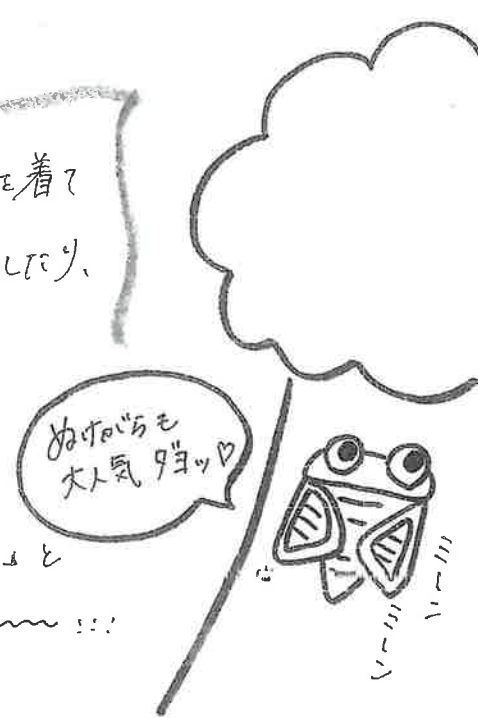 を着て
したり、
ぬけがらも
大人気ダヨッ♡
と
ミーン
ミーン